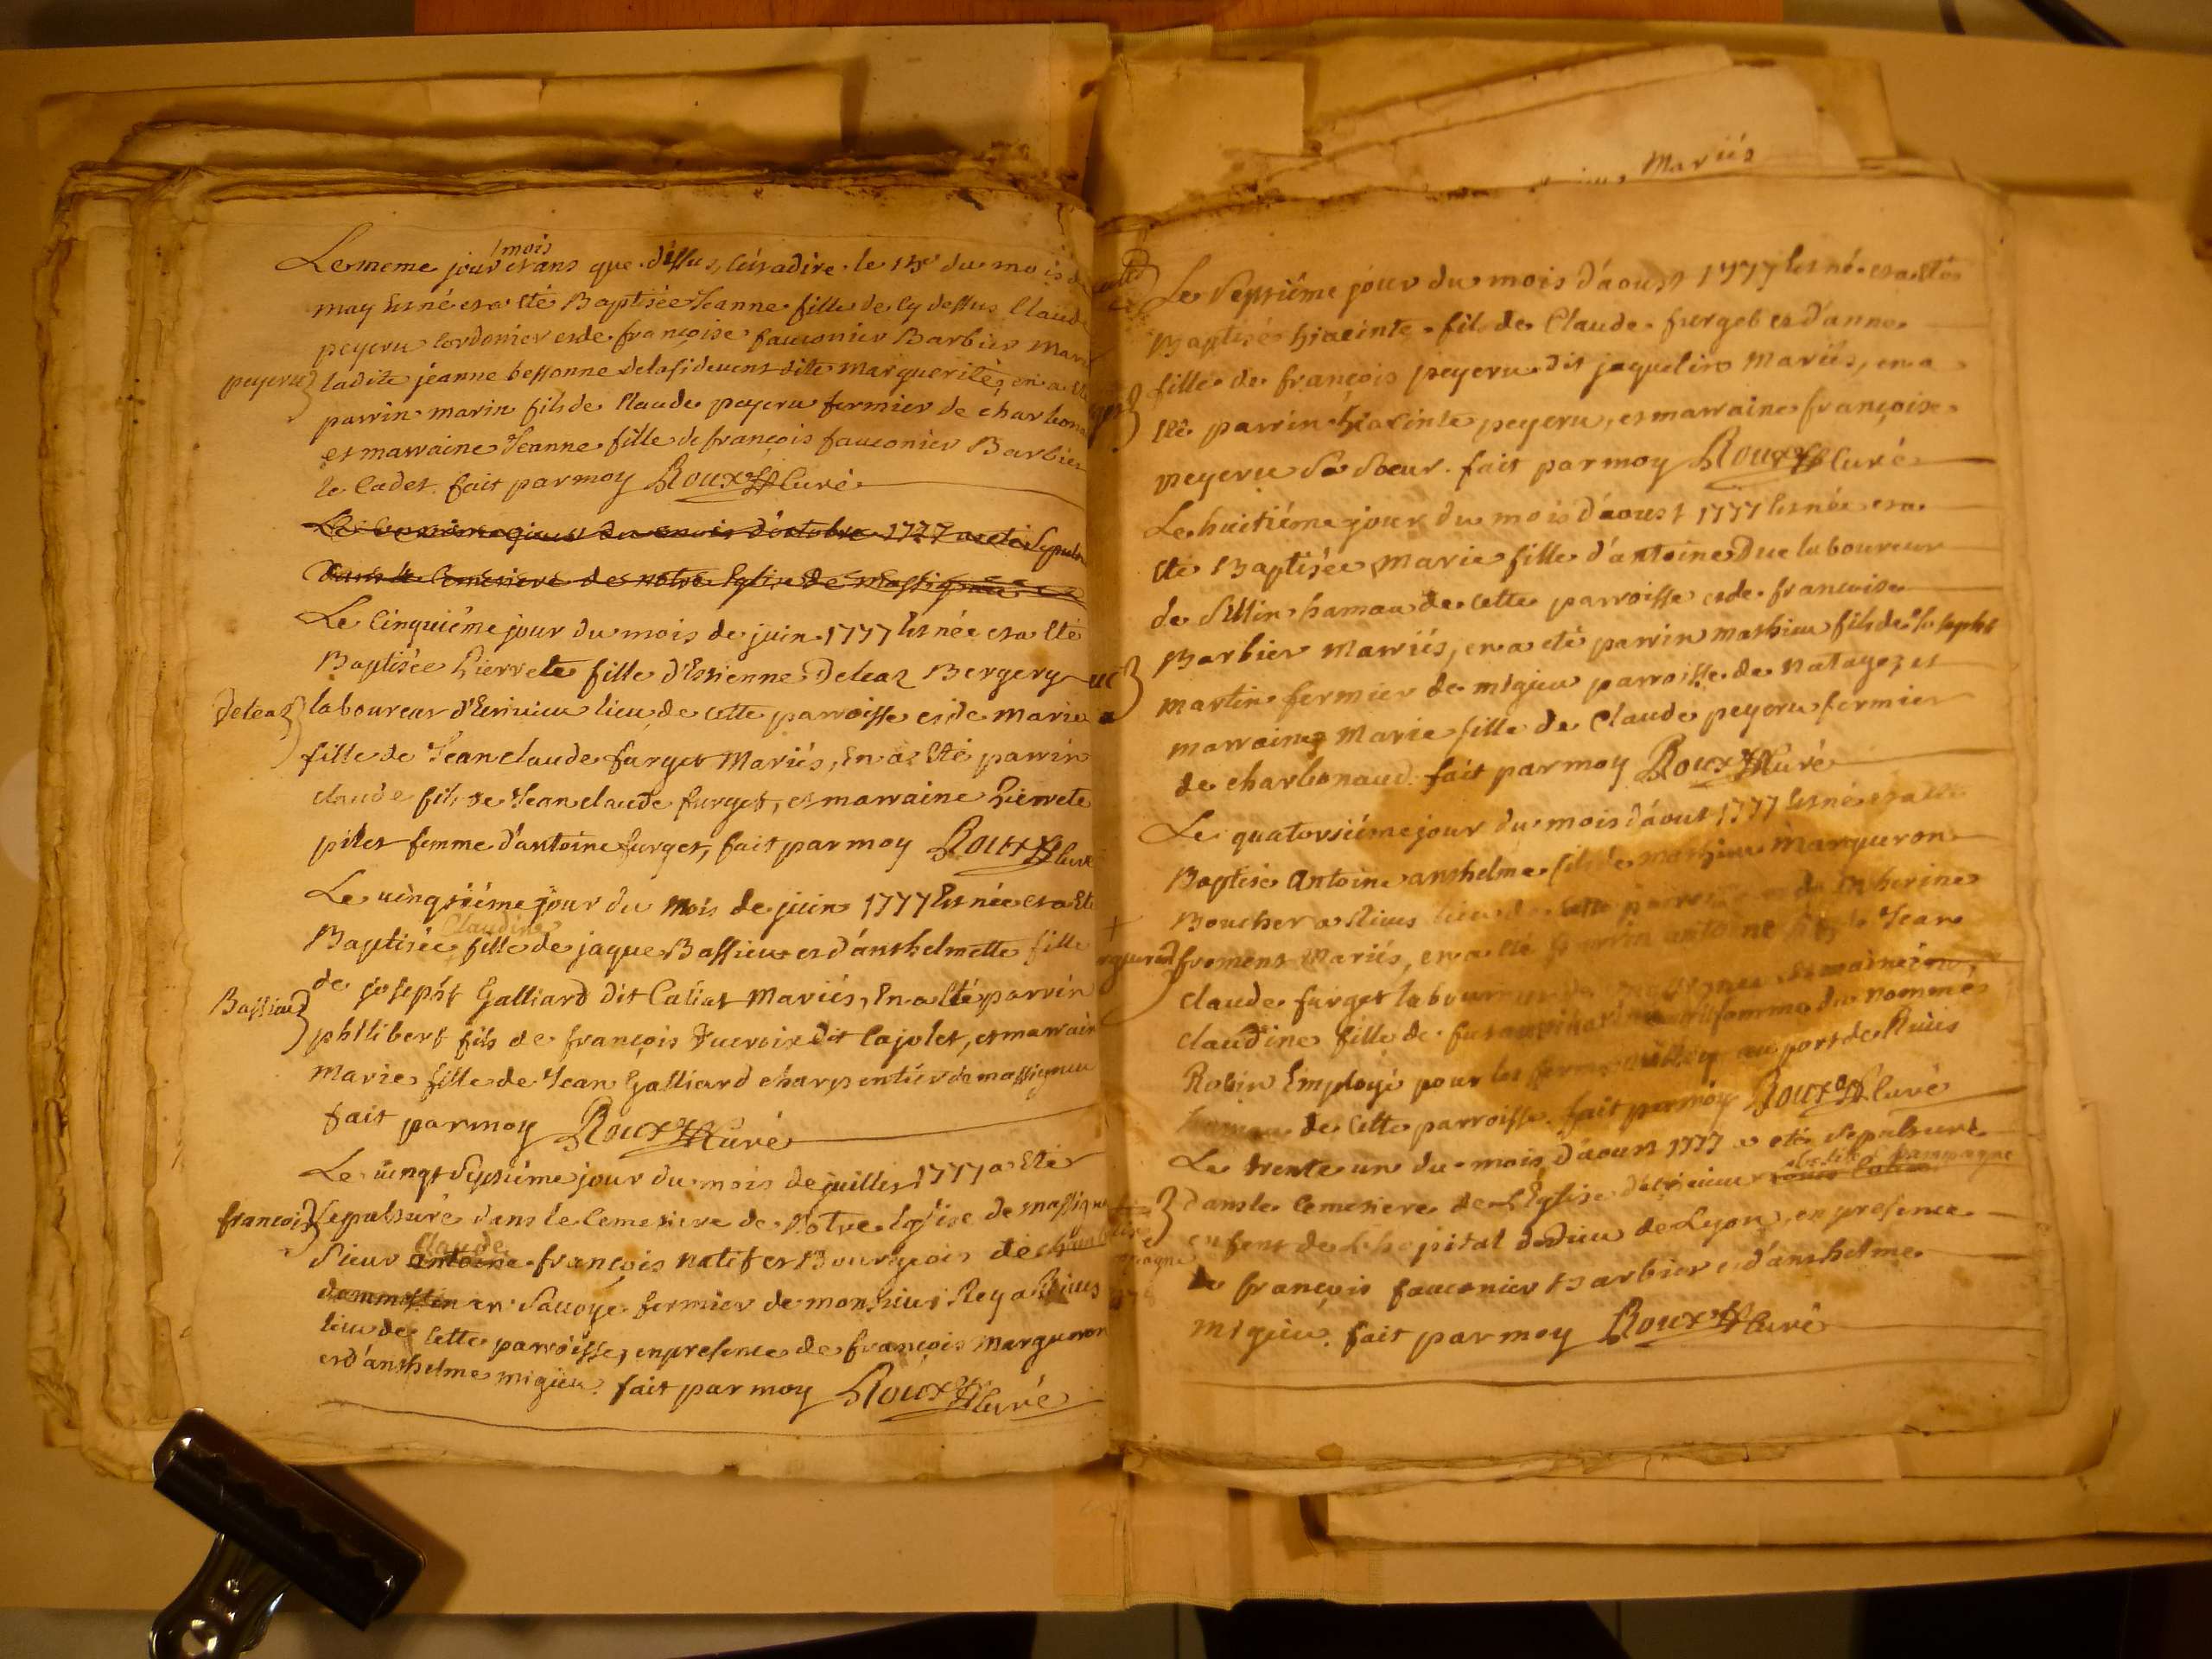 Mariés
Le meme jour mois et ans que dessus, C'est a dire le du mois de
may Est né et a Eté Baptisée Jeanne fille de Cy dessus Claude
peyeru Cordonier et de françoise fauconier Barbier
peyeru ladite jeanne bessonne de la sideuent dite marguerite, en a
parrin marin fils de Claude peyeru fermier de
et marraine Jeanne fille de françois fauconier Barbier
le Cadet. fait par moy Roux Curé
jour du mois d'octobre 1777 a eté
dans le Cemetiere de notre Eglise de Massigneu
Le Cinquiéme jour du mois de juin 1777 Est née et a Eté
Baptisée Pierrete fille d'Estienne Deleaz Bergery
Deleaz laboureur d'Ecrivieu lieu de cette parroisse et de marie
fille de Jean claude furget Mariés, En a Eté parrin
claude fils de Jean claude furget, et marraine Pierrete
pitet femme d'antoine furget, fait par moy Roux Curé
Le uingtiéme jour du mois de juin 1777 Est née et a Eté
Claudine
Baptisée fille de jaque Bassieu et d'anthelmette fille
de joseph Galliard dit Caliat Mariés, En a Eté parrin
Bassieu
philibert fils de françois dit Cajolet, et marraine
marie fille de Jean Galliard charpentier de massigneu
fait par moy Roux Curé
Le uingt Septiéme jour du mois de juillet 1777 a Eté
françois Sepulturé dans le Cemetiere de Notre Eglise de massigneu
Claude
Sieur antoine françois natif et Bourgeois de
en Sauoye fermier de monsieur Rey a
lieu de Cette parroisse, en presence de françois Marguron
et d'anthelme migieu. fait par moy Roux Curé
Le Septiéme jour du mois d'aoust 1777 Est né et a Eté
Baptisé hiacinte fils de Claude furget et d'anne
fille de françois peyeru dit jaquelin Mariés, en a
Eté parrin hiacinte peyeru, et marraine françoise
peyeru Sa Soeur. fait par moy Roux Curé
Le huitiéme jour du mois d'aoust 1777 Est née et a
Eté Baptisée Marie fille d'antoine Duc laboureur
de Sillin hamau de Cette parroisse et de francoise
Barbier Marriés, en a eté parrin mathieu fils de Joseph
martin fermier de migieu parroisse de Natagez et
marraine Marie fille de Claude peyeru fermier
de charbonaud. fait par moy Roux Curé
Le quatorsiéme jour du mois d'aout 1777 Est né et a Eté
Baptisé Antoine anthelme fils de mathieu Marguron
Boucher a lieu de Cette et de Catherine
froment Mariés, en a Eté parrin antoine fils de Jean
claude furget laboureur de massigneu et marraine
claudine fille de femme du nommé
Robin Employé pour les fermes au port de
hamau de Cette parroisse. fait par moy Roux Curé
Le trente un du mois d'aoust 1777 a eté Sepulturé
dans le Cemetiere de l'Eglise d'Ecrivieu
enfent de l'hopital de Dieu de Lyon, en presence
de françois fauconier Barbier et d'anthelme
migieu. fait par moy Roux Curé